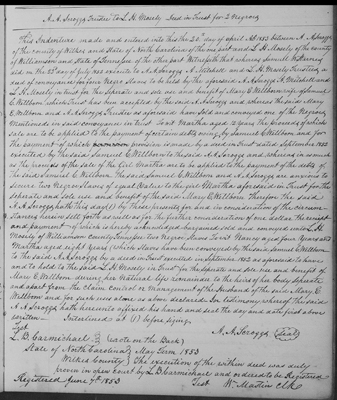 A. A. Scroggs Trustee to L. H. Mosely Deed in Trust for 2 Negroes
This Indenture made and entered into this the 2d day of April AD 1853 between A. A. Scroggs
of the county of Wilkes and State of North Carolina of the one part and L. H. Mosely of the county
of Williamson and State of Tennessee of the other part Witnesseth that whereas Samuel Wellborn
did on the 25 day of July 1845 execute to A. A. Scroggs A. Mitchell and L. H. Mosely Trustees, a
deed of conveyance for four Negro Slaves to be held by the aforesaid A. A. Scroggs A. Mitchell and
L. H. Mosely in trust for the seperate and sole use and benefit of Mary E. Wellborn wife of Samuel
E. Wellborn which Trust has been accepted by the said A. A. Scroggs and whereas the said Mary
E. Wellborn and A. A. Scroggs Trustee as aforesaid have sold and conveyed one of the Negroes
Mentioned in said conveyance in trust to wit Martha aged 3 years the proceeds of which
sale are to be applied to the payment of certain debts owing by Samuel E. Wellborn and for
the payment of which provision is made by a deed in Trust dated September 1852
executed by the said Samuel E. Wellborn to A. A. Scroggs and whereas in as much
as the proceeds of the sale of the Girl Martha are to be applied to the payment of the debts of
the said Samuel E. Wellborn. The said Samuel E. Wellborn and A. A. Scroggs are anxious to
secure two Negro Slaves of equal value to the girl Martha aforesaid in Trust for the
seperate and sole use and benefit of the said Mary E. Wellborn Therefore the said
A. A. Scroggs hath this day by these presents for and in consideration of the
herein set forth as well as for the further consideration of one dollar the receipt
and payment of which is hereby acknowledged bargained sold and conveyed unto L. H.
Mosely of Williamson County Tennessee two Negro Slaves To wit Harvey aged four years and
Martha aged eight years which Slaves have been conveyed by the said Samuel E. Wellborn
to the said A. A. Scroggs by a deed in Trust executed in September 1852 as aforesaid to have
and to hold to the said L. H. Mosely in Trust for the seperate and sole use and benefit of
Mary E. Wellborn during her natural life remainder to the heirs of her body seperate
and apart from the claim control or management of the Husband of the said Mary E.
Wellborn and for such uses alone as above declared In testimony whereof the said
A. A. Scroggs hath hereunto affixed his hand and seal the day and date first above
written Interlined at (1) before signing
Test A. A. Scroggs (Seal)
L. B. Carmichael (note on the Back)
State of North Carolina May Term 1853
Wilkes County The execution of the within deed was duly
proven in open court by L. B. Carmichael and ordered to be Registered
Registered June 7th 1853 Test Wm Mastin clk